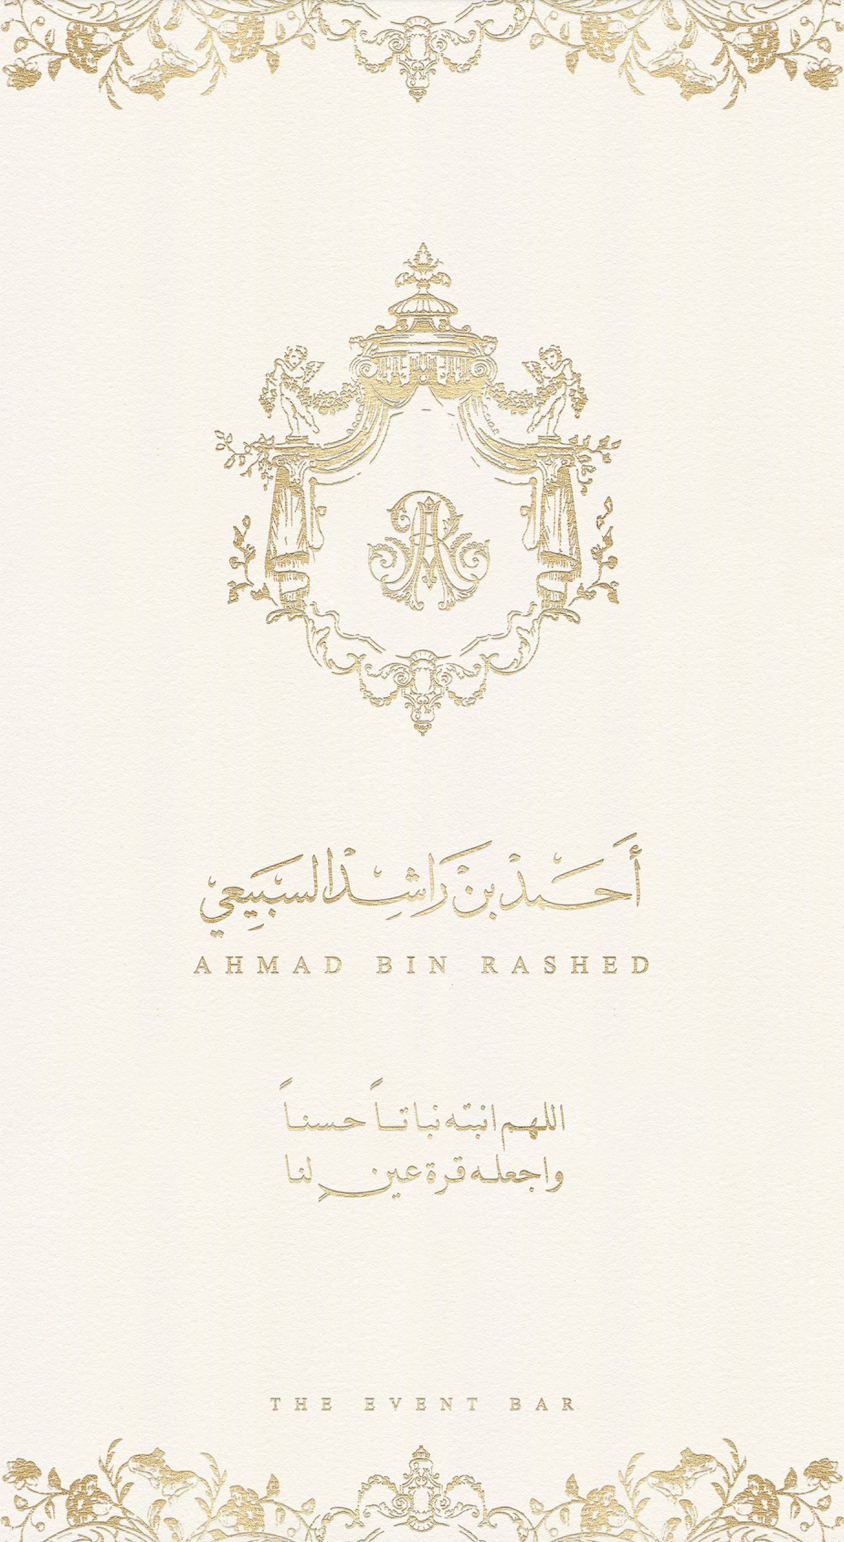 أَحمَدْ بنْ رَاشِدْ السبَيعيْ
AHMAD BIN RASHED
اللهم انبته نباتاً حسناً
واجعله قرة عينٍ لنا
THE EVENT BAR